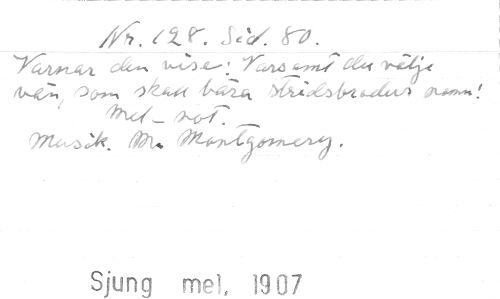 Nr. 128. Sid. 80.
Varnar den vise: Varsamt du välje
vän, som skall bära stridsbroders namn!
Mel-not.
Musik. M. Montgomery.
Sjung mel, 1907